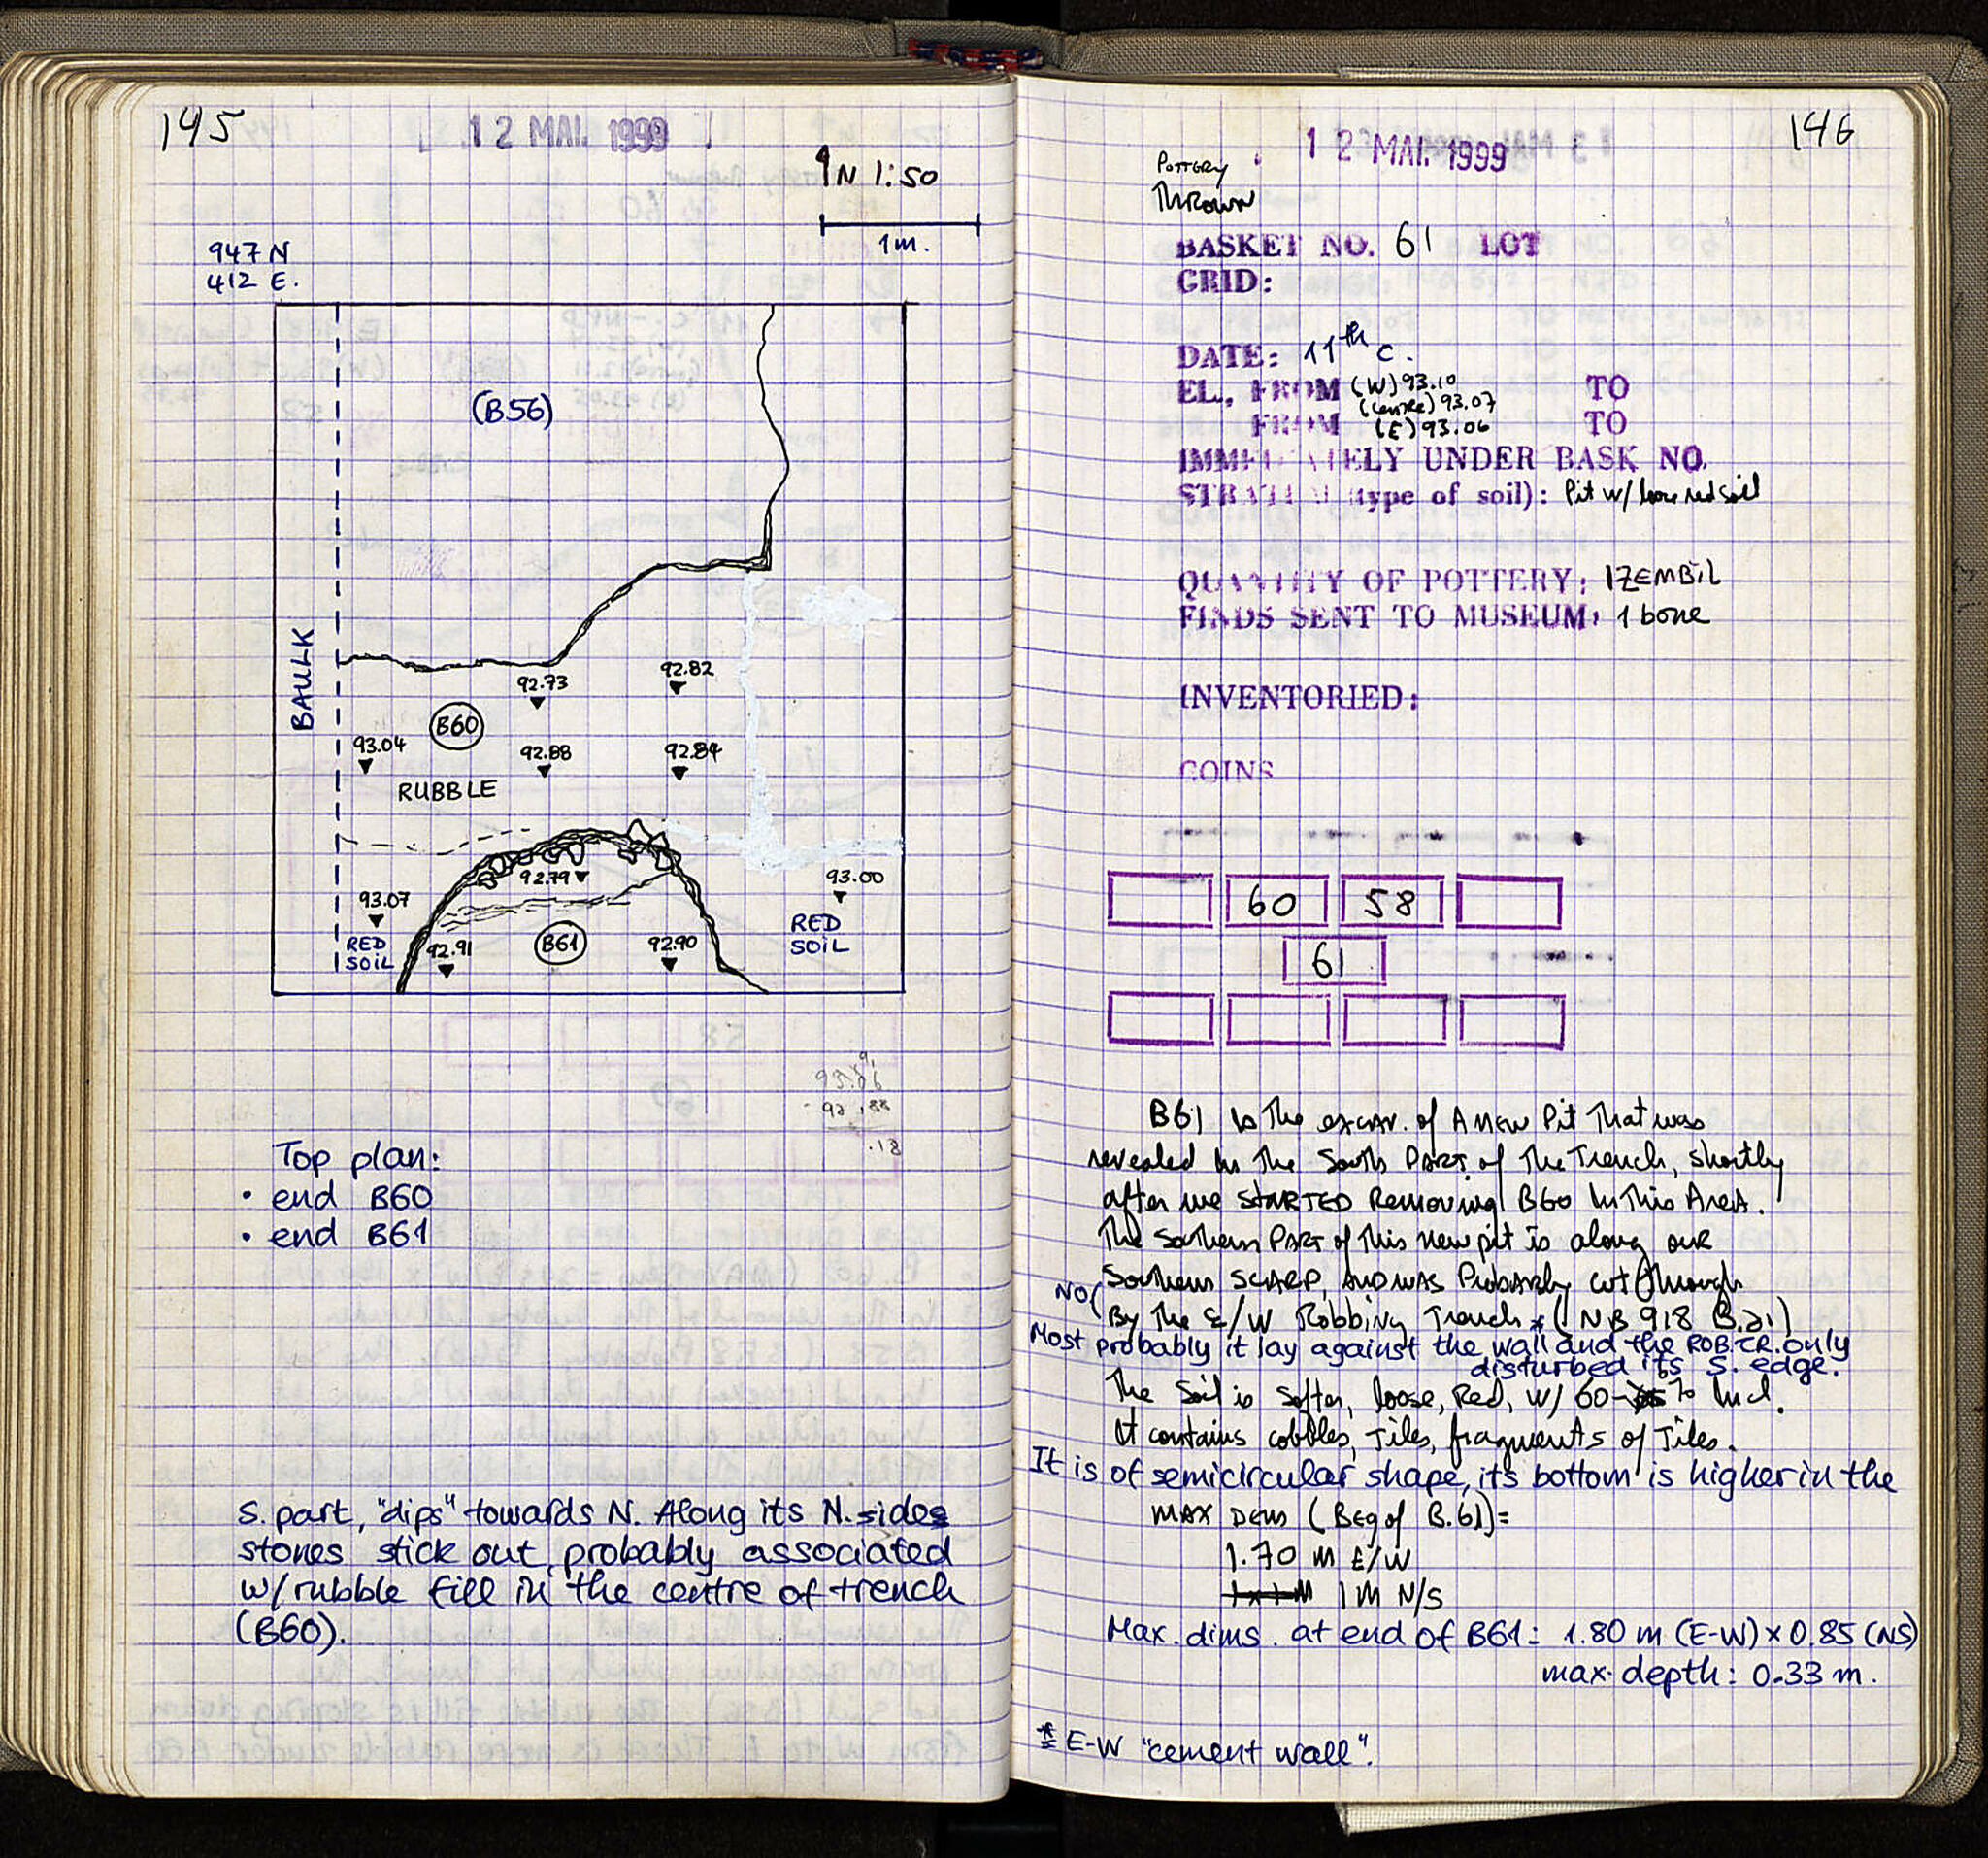 145
12 MAI. 1999
N 1:50
1m.
947 N
412 E.
(B56)
BAULK
92.73
92.82
B60
93.04
92.88
92.84
RUBBLE
92.79
93.00
93.07
RED
SOIL
92.91
B61
92.90
RED
SOIL
92.88
.18
Top plan:
• end B60
• end B61
S. part, "dips" towards N. Along its N. sides
stones stick out, probably associated
w/ rubble fill in the centre of trench
(B60).
146
12 MAI. 1999
POTTERY
THROWN
BASKET NO. 61 LOT
GRID:
DATE: 11th c.
EL. FROM (W) 93.10 TO
(centre) 93.07
FROM (E) 93.06 TO
IMMEDIATELY UNDER BASK NO.
STRATUM (type of soil): Pit w/ loose red soil
QUANTITY OF POTTERY: 1 ZEMBIL
FINDS SENT TO MUSEUM: 1 bone
INVENTORIED:
COINS
60 58
61
B61 Is The excav. of A new Pit That was
revealed In The South PART of The Trench, shortly
after we STARTED Removing B60 In This Area.
The Southern PART of this new pit is along our
Southern SCARP, AND WAS Probably cut through
NO (By The E/W Robbing Trench * (NB 918 B.21)
Most probably it lay against the wall and the ROB.TR. only
disturbed its S. edge.
The Soil is softer, loose, Red, w/ 60- % Incl.
It contains cobbles, Tiles, fragments of Tiles.
It is of semicircular shape, its bottom is higher in the
MAX DIMS (Beg of B.61)=
1.70 m E/W
1 M N/S
Max. dims. at end of B61: 1.80 m (E-W) x 0.85 (NS)
max. depth: 0.33 m.
* E-W "cement wall".